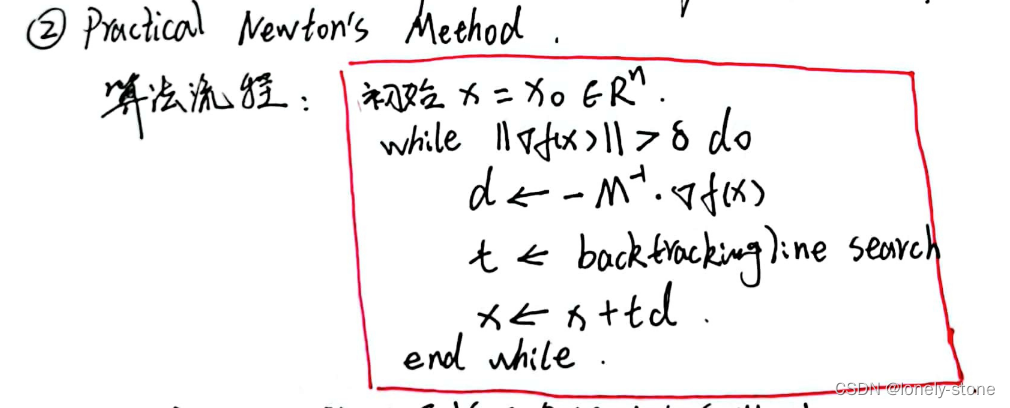 ② Practical Newton's Method.
算法流程:
初始 x = x₀ ∈ Rⁿ.
while ||∇f(x)|| > δ do
d ← - M⁻¹·∇f(x)
t ← backtracking line search
x ← x + td.
end while.
CSDN @lonely-stone